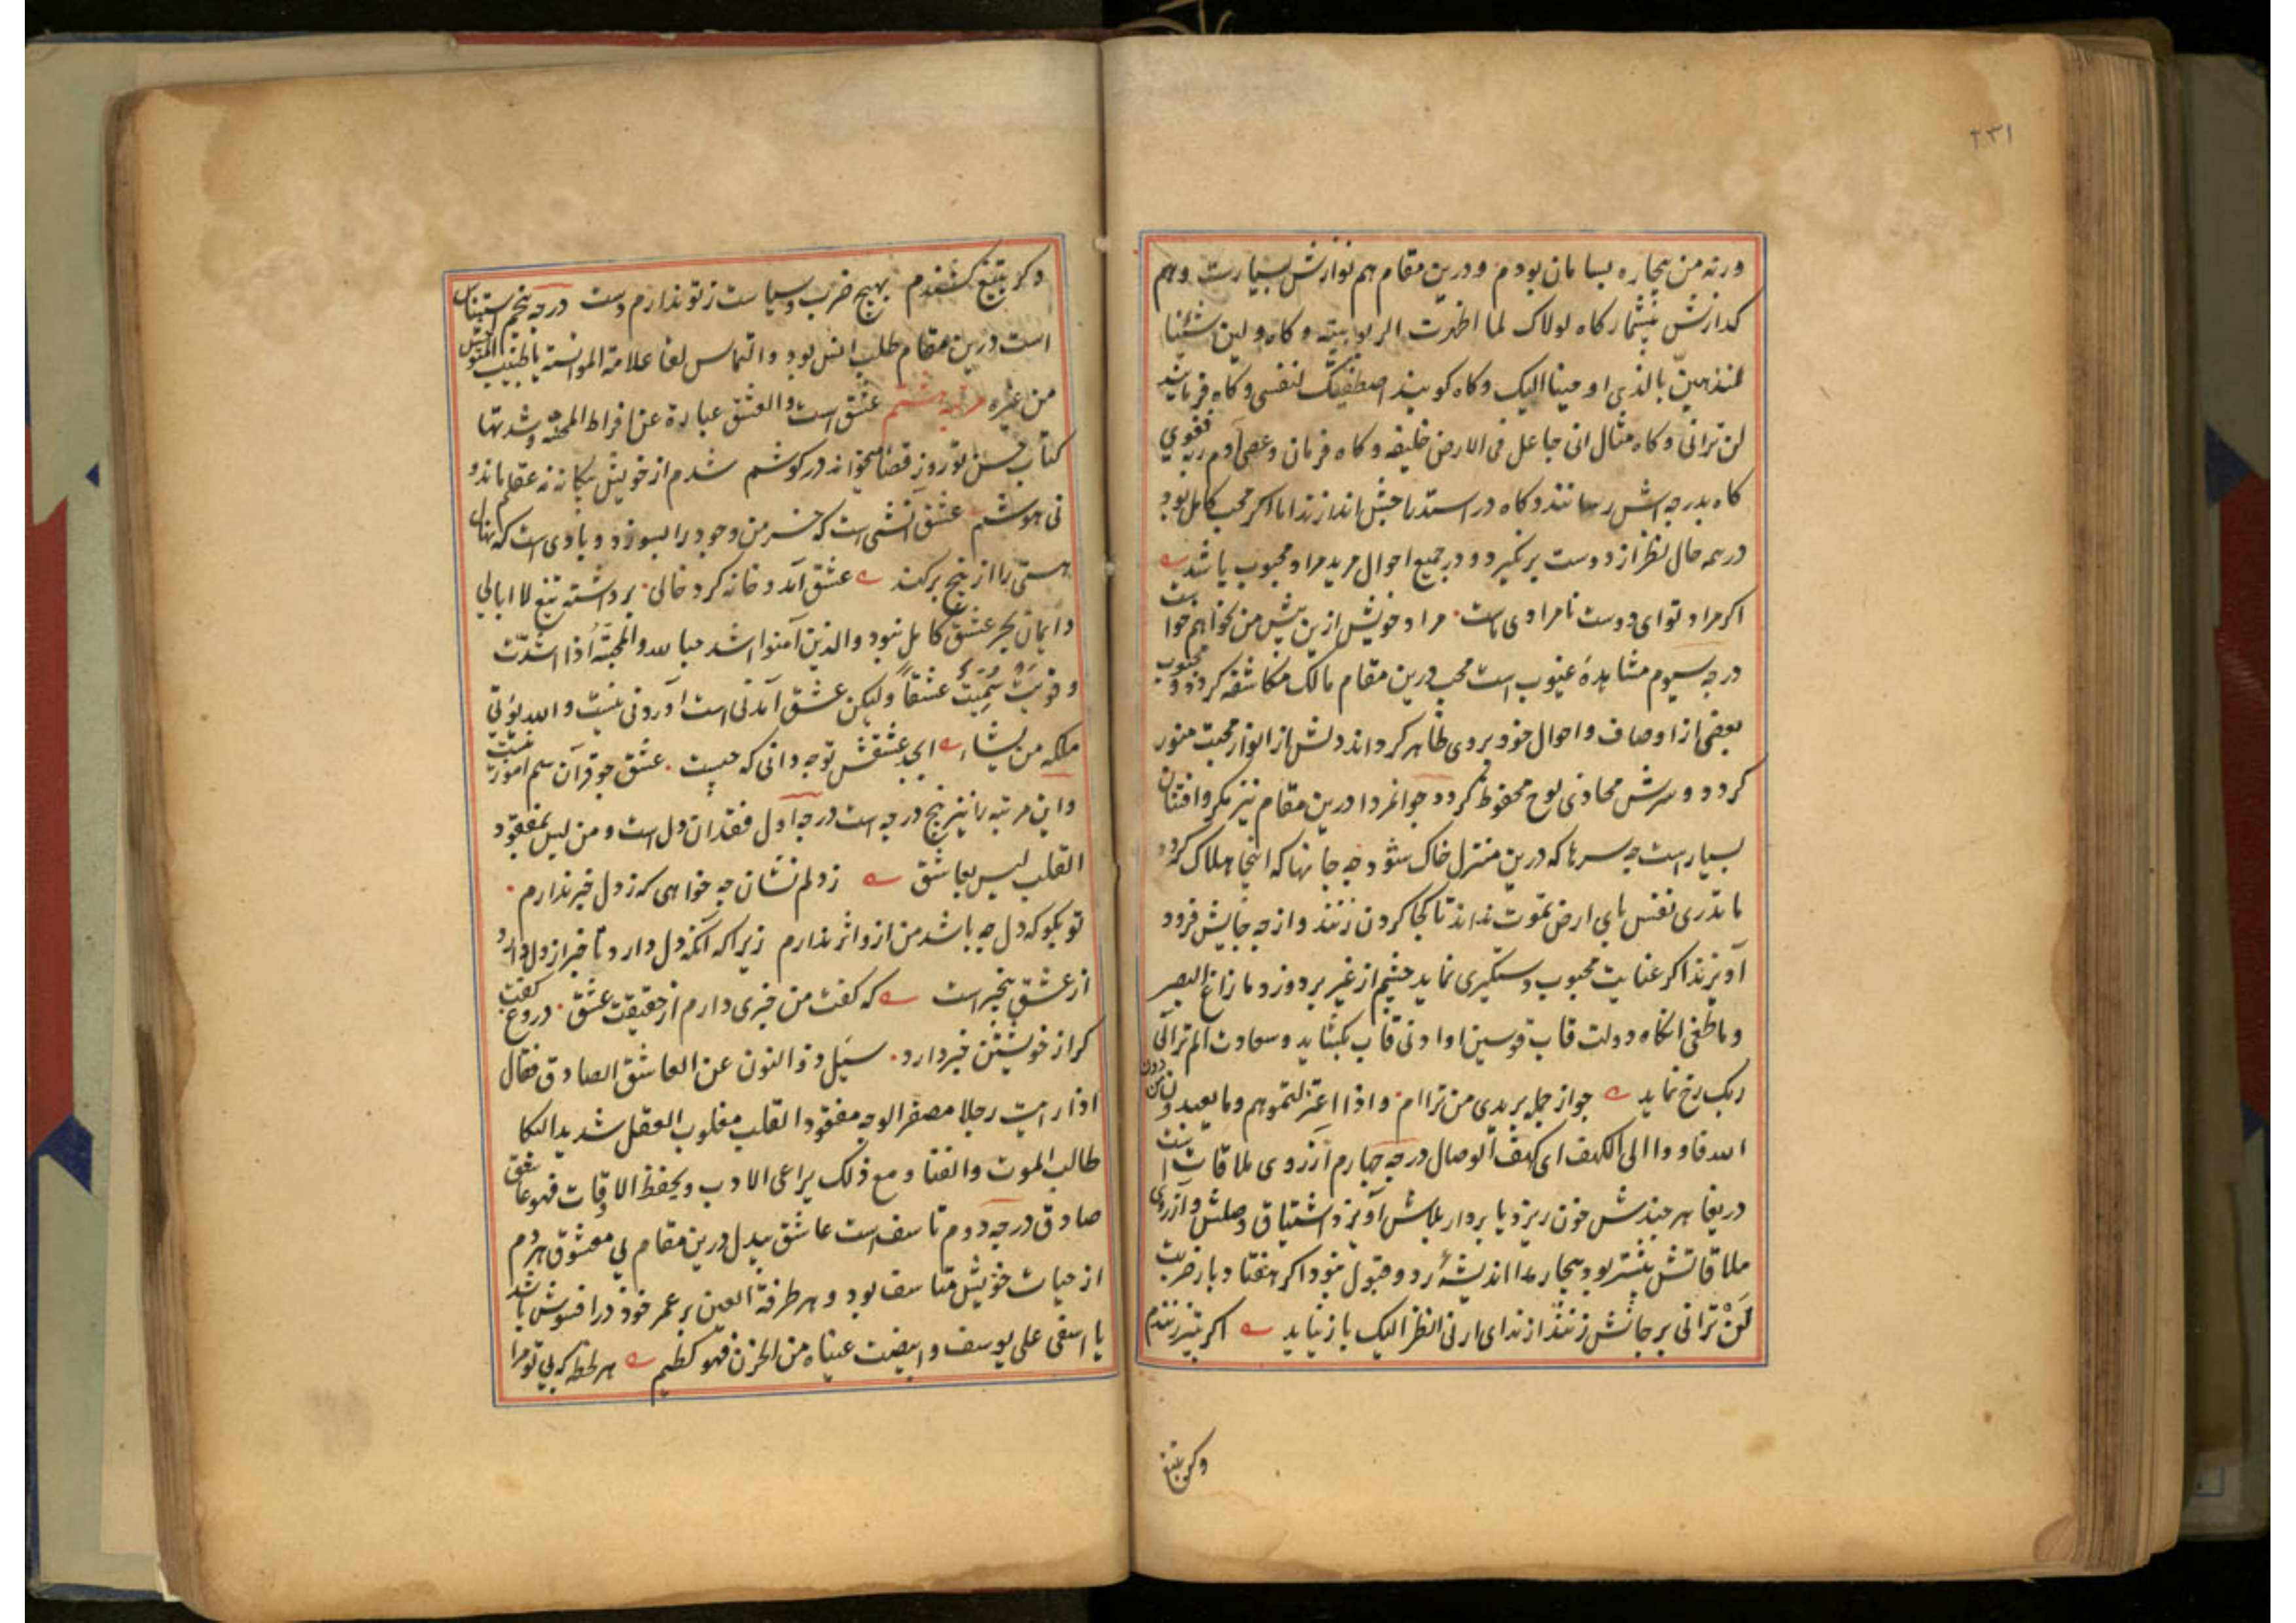 ۲۳۱
ورنه من بیچاره بسامان بودم ودرین مقام هم نوازش بسیارست وهم
کدازش بیشمار کاه لولاک لما اظهرت الربوبیته وکاه ولین شئنا
لنذهبن بالذی اوحینا الیک وکاه کویند اصطفیتک لنفسی وکاه فرماید
لن ترانی وکاه مثال انی جاعل فی الارض خلیفه وکاه فرمان وعصی آدم ربه فغوی
کاه بدرجه اش رسانند وکاه در اندازند اما اکر محب کامل بود
در همه حال نظر از دوست برنکیرد ودر جمیع احوال مرید مراد محبوب باشد
اکر مراد تو ای دوست نامرادی ماست مراد خویش ازین پیش من نخواهم خواست
درجه سیوم مشاهدهٔ غیوب است محب درین مقام مالک مکاشفه کردد و محبوب
بعضی از اوصاف واحوال خود بروی ظاهر کرداند دلش از انوار محبت منور
کردد وسرش محاذی لوح محفوظ کردد جوانمردا درین مقام نیز مکر وافتنان
بسیارست چه سرها که درین منزل خاک شود چه جانها که اینجا هلاک کردد
ما تدری نفس بای ارض تموت نداند تا کجا کردن زنند واز چه جایش فرود
آویزند اکر عنایت محبوب دستکیری نماید چشم از غیر بردوزد ما زاغ البصر
وما طغی انکاه دولت قاب قوسین او ادنی قاب بکشاید وسعادت الم تر الی
ربک رخ نماید جواز جمله بریدی من ترا ام واذا اعتزلتموهم وما یعبدون من دون
الله فاووا الی الکهف ای کهف الوصال درجه چهارم آرزوی ملاقات است
دریغا هر چندش خون ریزد یا بر دار بلاش آویزد اشتیاق وصلش وآرزوی
ملاقاتش بیشتر بود بیچاره را اندیشهٔ رد وقبول نبود اکر هفتاد بار ضربت
لَنْ ترانی بر جانش زنند از ندای ارنی انظر الیک باز نیاید اکر بتیر زنندم
وکر بتیغ
وکر بتیغ کشندم بهیچ ضرب وسیاست ز تو ندارم دست درجه پنجم استیناس
است درین مقام طلب انس بود والتماس لقا علامة الموانسة یا طبیب المتوحش
من غیره مرتبه هشتم عشق است والعشق عبارة عن افراط المحبة وشدتها
کتاب حسن تو روز قضا میخواند در کوشم شدم از خویش بیکانه نه عقلم ماند و
نی هوشم عشق آتشی است که خرمن وجود را بسوزد وبادی است که نهال
هستی را از بیخ برکند عشق آمد وخانه کرد خالی برداشته تیغ لاابالی
وایمان بجز عشق کامل نبود والذین آمنوا اشد حبا لله والمحبّة اذا اشتدّت
وقویت سُمِّیَتْ عشقاً ولیکن عشق آمدنی است آوردنی نیست والله یؤتی
ملکه من یشاء ابجد عشقش تو چه دانی که چیست عشق چو قرآن هم آموز نیست
واین مرتبه را نیز پنج درجه است درجه اول فقدان دل است ومن لیس بمفقود
القلب لیس بعاشق ز دلم نشان چه خواهی که ز دل خبر ندارم
تو بکو که دل چه باشد من ازو اثر ندارم زیرا که آنکه دل دارد تا خبر از دل دارد
از عشق بیخبر است که کفت من خبری دارم از حقیقت عشق دروغ کفت
کر از خویشتن خبر دارد سیل ذوالنون عن العاشق الصادق فقال
اذا رایت رجلا مصفر الوجه مفقود القلب مغلوب العقل شدید البکا
طالب الموت والفنا ومع ذلک یراعی الادب ویحفظ الاوقات فهو عاشق
صادق درجه دوم تاسف است عاشق بیدل درین مقام بی معشوق هر دم
از حیات خویش متاسف بود وهر طرفة العین بر عمر خود در افسوش باشد
یا اسفی علی یوسف وابیضت عیناه من الحزن فهو کظیم هر لحظه که بی تو مرا